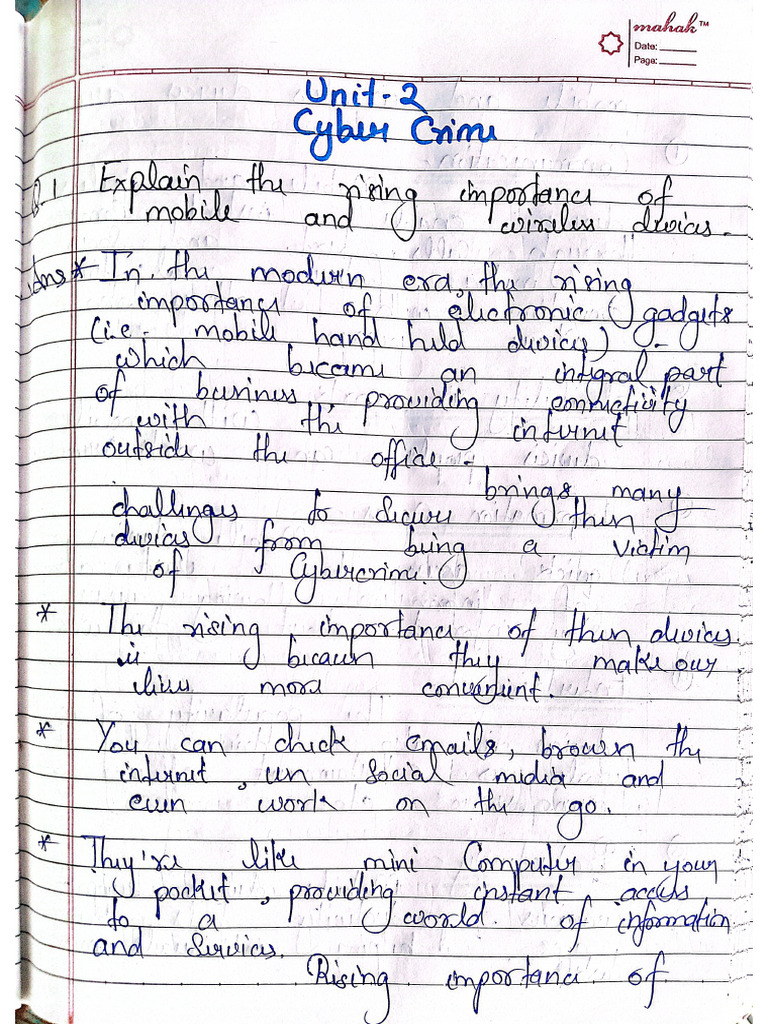 mahak™
Date:
Page:
Unit-2
Cyber Crime
Q.1 Explain the rising importance of
mobile and wireless devices.
Ans * In the modern era, the rising
importance of electronic gadgets
(i.e. mobile hand held devices) -
which became an integral part
of business providing connectivity
with the internet
outside the office -
brings many
challenges to secure these
devices from being a victim
of Cybercrime.
* The rising importance of these devices
is because they make our
lives more convenient.
* You can check emails, browse the
internet, use social media and
even work on the go.
* They're like mini Computer in your
pocket, providing instant access
to a world of information
and services.
Rising importance of